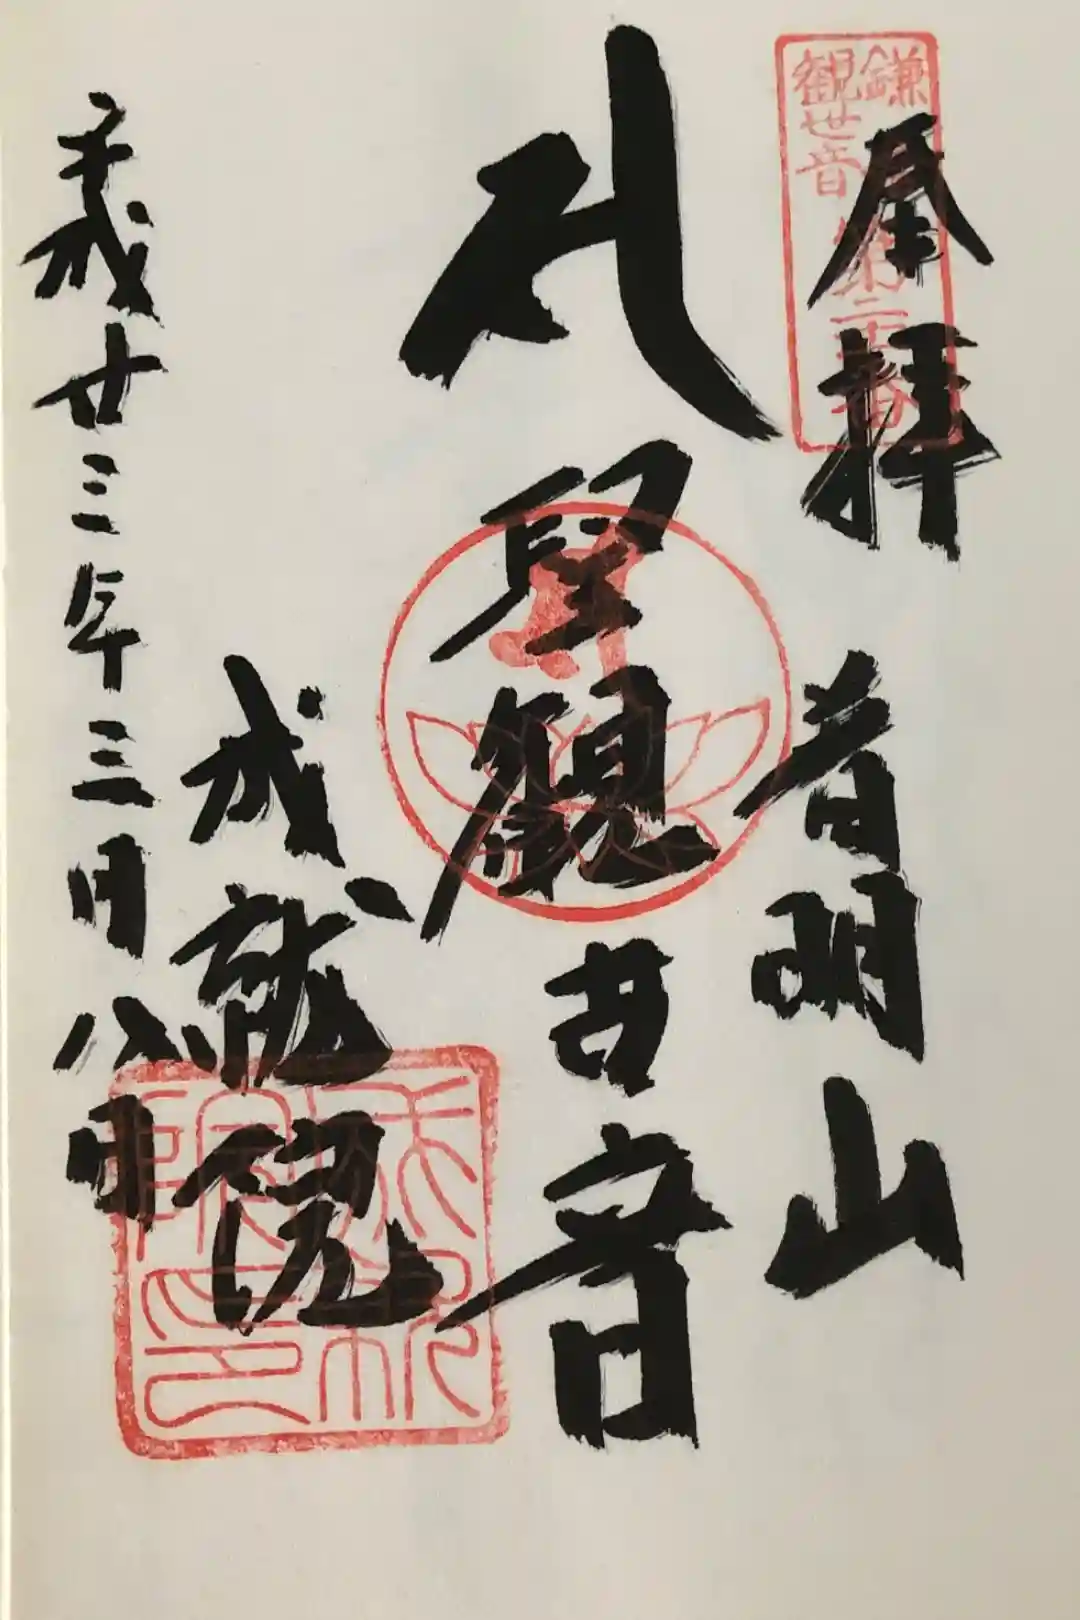 鎌倉
観世音
第二十一番
奉拝 普明山
聖観世音
成就院
平成廿三年三月八日
成就院印